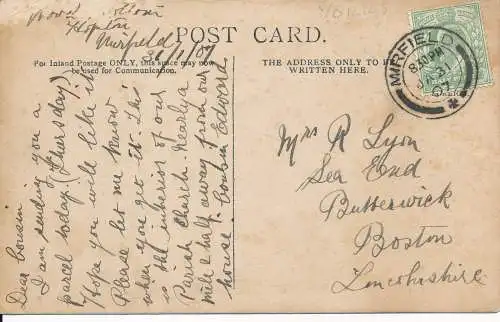 Hopton
Mirfield
POST CARD.
For Inland Postage ONLY, this space may now
be used for Communication.
THE ADDRESS ONLY TO BE
WRITTEN HERE.
MIRFIELD
8.30PM
Dear Cousin
I am sending you a
parcel today (Thursday)
Hope you will like it
Please let me know
when you get it. This
is the interior of our
Parish Church. Nearly a
mile & half away from our
house. Cousin Edward
Mrs R Lyon
Sea End
Butterwick
Boston
Lincolnshire